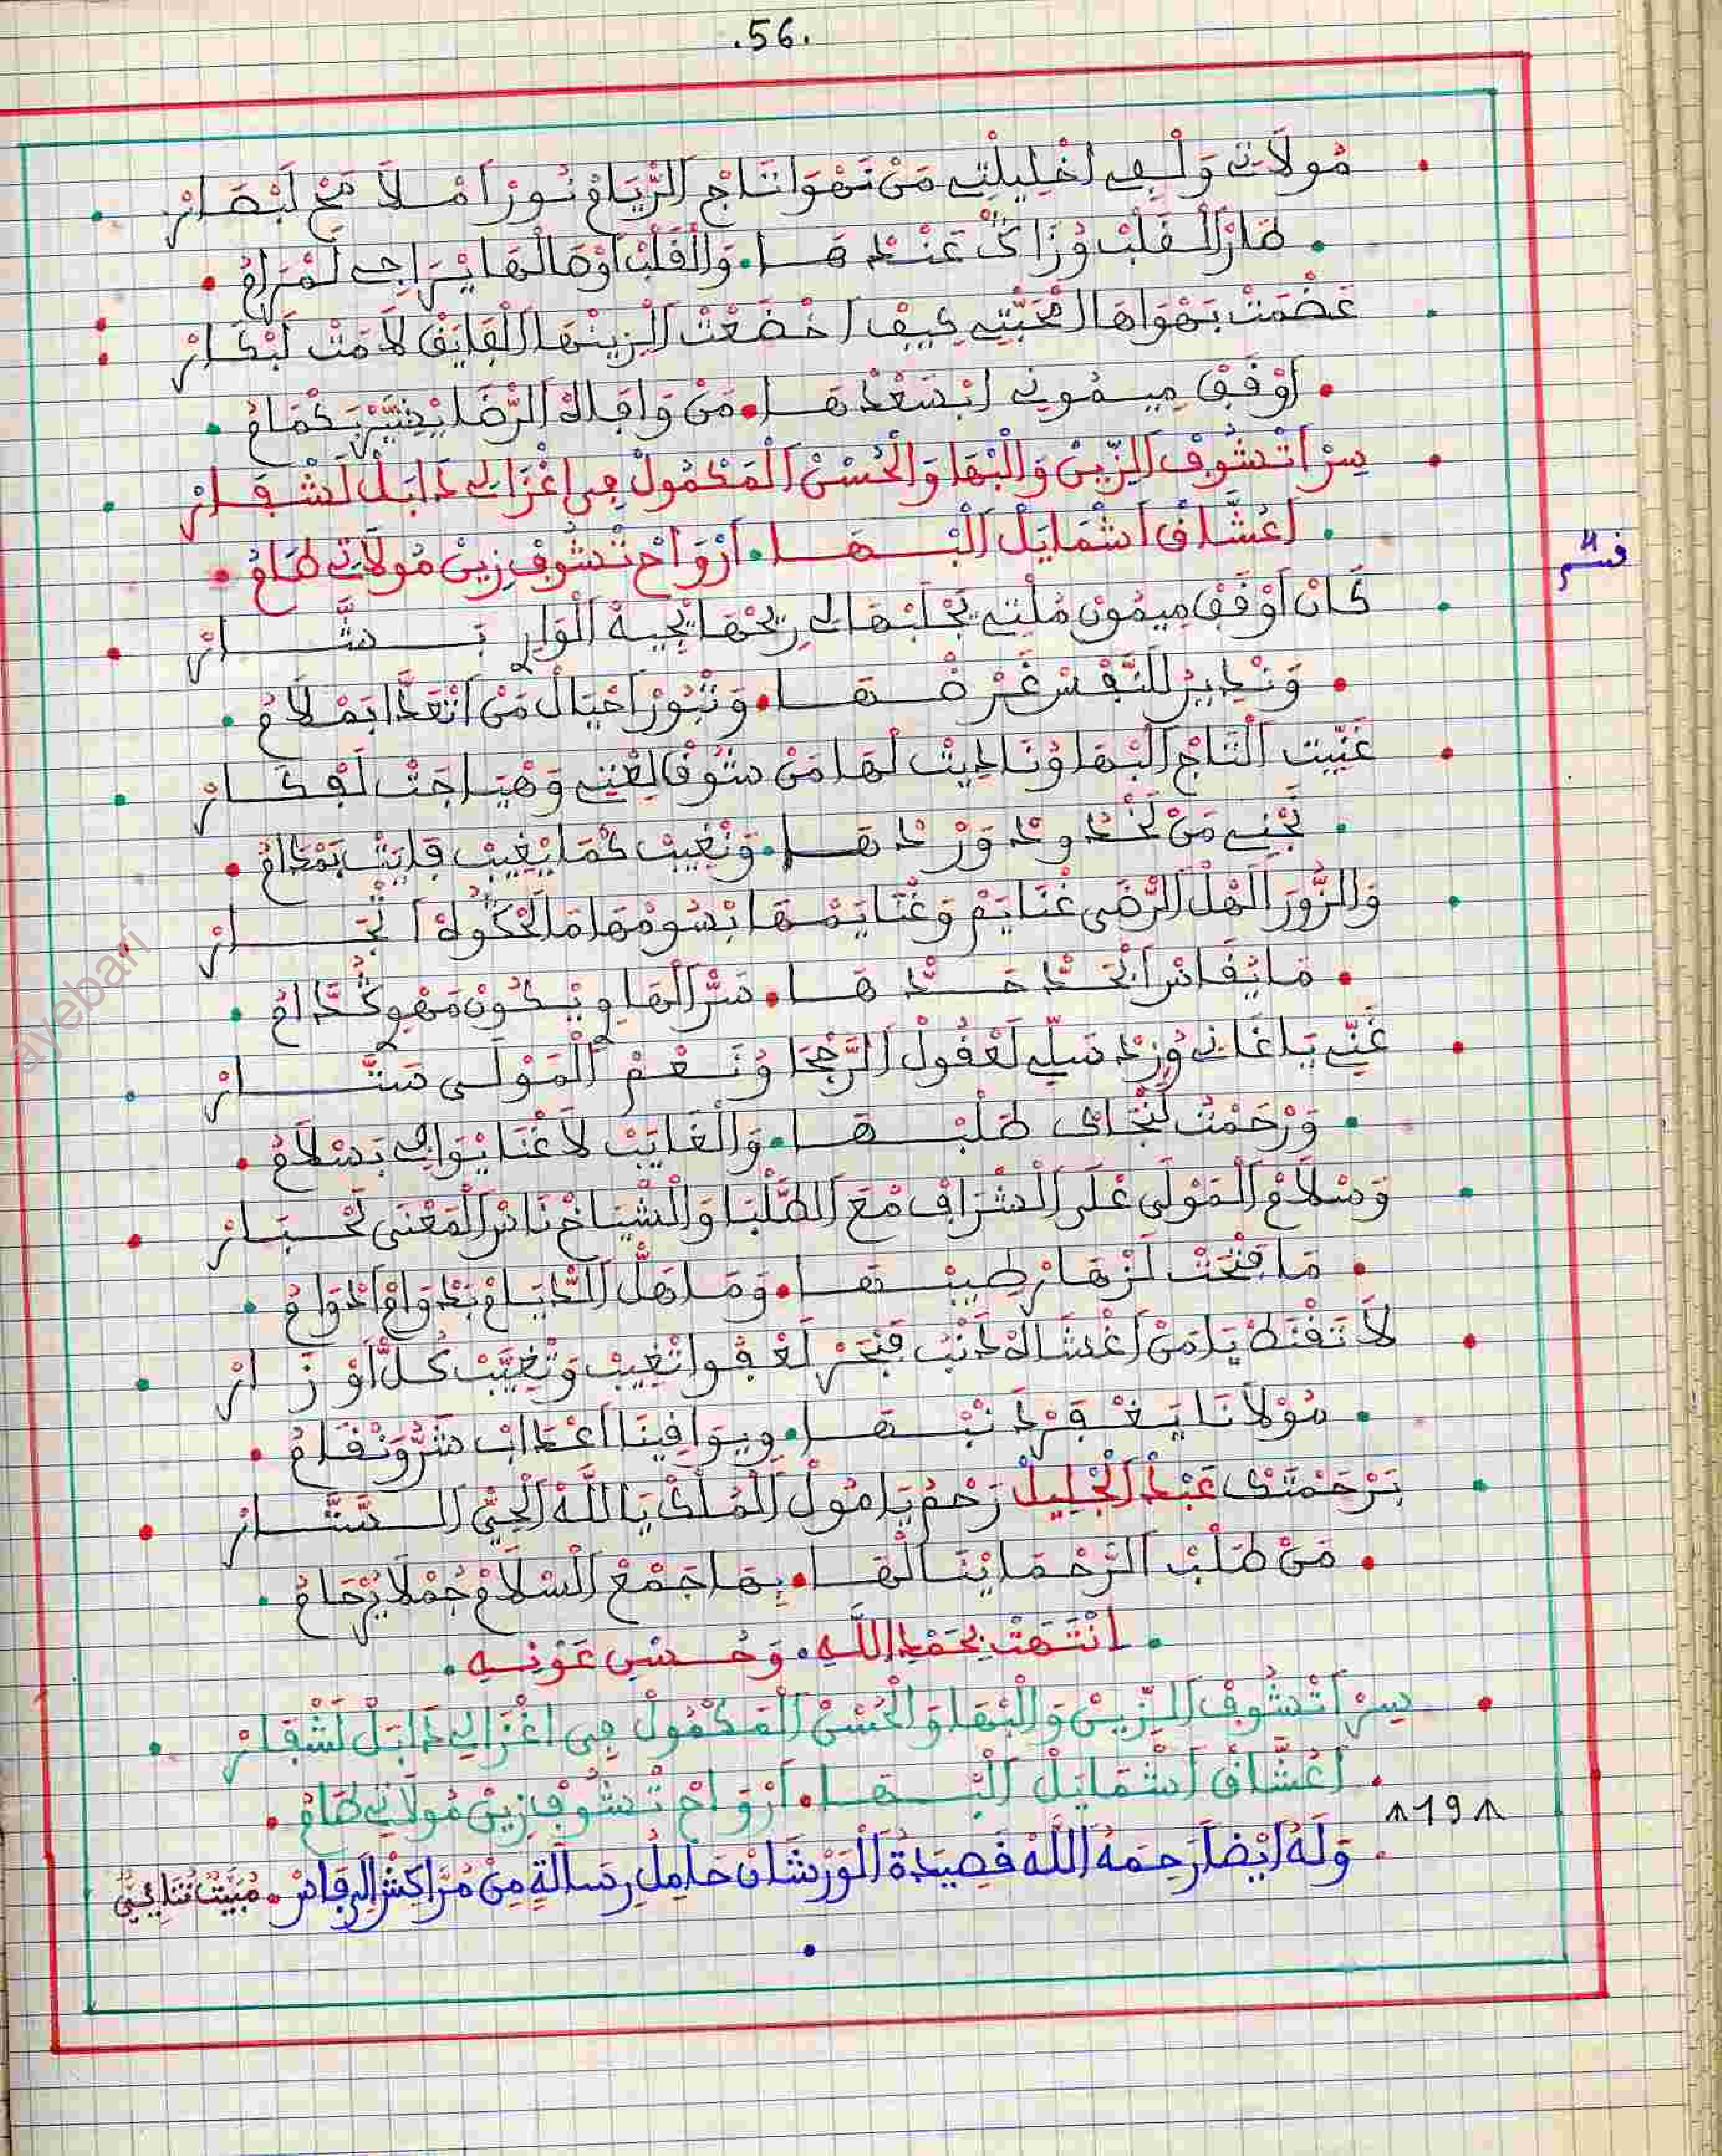 .56.
مُولَاتِي وَلْفِي اخْلِيلْتِي مَنْ نَهْوَا تَاجْ الرّْيَامْ نُورْ امْلَا مَحْ لَبْصَارْ
طَارْ الْقَلْبْ وُزَاگْ عَنْدْهَا . وَالْقَلْبْ اوْهَالْهَا يْرَاجِي لَمْرَامْ
عَضْمَتْ بَهْوَاهَا امْحَبّْتِي كِيفْ اخْضَعْتْ الزِينْهَا الْفَايَقْ لَامَتْ لَبْكَارْ
اوْفَقْ مِيمُونِي ابْسَعْدْهَا . مَنْ وَافَاكْ الرّْضَا يْضَيَّرْ بَكْمَامْ
سِرْ اتْشُوفْ الزِّينْ وَالْبْهَا وَالْحُسْنْ الْمَكْمُولْ فِي اغْزَالِي دَابَلْ لَشْفَارْ
اعُشَّاقْ اشْمَايَلْ الْبْهَا . ارْوَاحْ تْشُوفْ زِينْ مُولَاتِي طَامُ
قسم 4
كَانْ اوْفَقْ مِيمُونْ مُلْتِي نَجْلَبْهَا لِي رِيحْهَا يْجِيبَهْ الْوَارِ بَشَّارْ
وَنْدِيرْ للنَّفْسْ غَرْضْهَا . وَنْبُورْ احْيَالْ مَنْ اتْعَدَّا بَمْلَامْ
غَنِّيتْ التَاجْ الْبْهَا وُنَادِيتْ لْهَا مَنْ شُوقَا لِعْنِي وَهْيَاجَتْ لَفْكَارْ
نَجْنِي مَنْ لَخْدُودْ وَرْدْهَا . وَنْغِيبْ كْمَا يْغِيبْ فَايَتْ بَمْدَامْ
وَالزُّورْ الَهْلْ الرّْضَى غْنَايَمْ وَغْنَايَمْهَا بْسُومْهَا مَا لَحْكُوهْ اتْجَارْ
مَا يْقَاسْ ابْحَدّْ حَدّْهَا . سَرّْ الْهَا وِيكُونْ مَهْوِ كَدَّامْ
غَنِّي يَا غَانِي وُزِيدْ سَلِّي لَعْقُولْ الرَّجْحَا وُنَعْمْ الْمَوْلَى سَتَّارْ
وَرْحَمْتْ لَنْجَاكْ طَلْبْهَا . وَالْغَايَبْ لَا غْنَا يْوَافِي بَسْلَامْ
وَسْلَامْ الْمَوْلَى عْلَى الشْرَافْ مْعَ الطَّلْبَا وَالشْيَاخْ نَاسْ الْمَعْنَى لَحْبَارْ
مَا فَتْحَتْ لَزْهَارْ طِيبْهَا . وَمَا هَلّْ الدْيَامْ بَدْوَامْ الدْوَامُ
لَا تَقْنَطْ يَا مَنْ اغْشَاكْ دَنْبْ فَبْحَرْ لَعْفُو اتْغِيبْ وَتْغِيَّبْ كُلّْ اوْزَارْ
مُولَانَا يَغْفَرْ دَنْبْهَا . وِيوَافِينَا اعْدَابْ شَرّْ وَنْقَامُ
بَرْحَمْتَكْ عَبْدْ الْجْلِيلْ رَحْمُ يَا مُولْ الْمُلْكْ يَا اللَّهْ الْحَيّْ السَّتَّارْ
مَنْ طَلْبْ الرَّحْمَا يْنَالْهَا . بِهَا جَمْعْ السْلَامْ جُمْلَا يُرْحَامُ
انْتَهَتْ بِحَمْدِ اللَّهِ . وَحُسْنِ عَوْنِهِ .
سِرْ اتْشُوفْ الزِّينْ وَالْبْهَا وَالْحُسْنْ الْمَكْمُولْ فِي اغْزَالِي دَابَلْ لَشْفَارْ
اعُشَّاقْ اشْمَايَلْ الْبْهَا . ارْوَاحْ تْشُوفْ زِينْ مُولَاتِي طَامُ
19
وَلَهُ ايْضاً رَحِمَهُ اللَّهْ قَصِيدَةْ الْوَرْشَانْ حَامِلُ رِسَالَةٍ مِنْ مُرَّاكِشْ إِلَى فَاسْ . مُبَيَّتْ ثُنَائِيّْ
ayebari